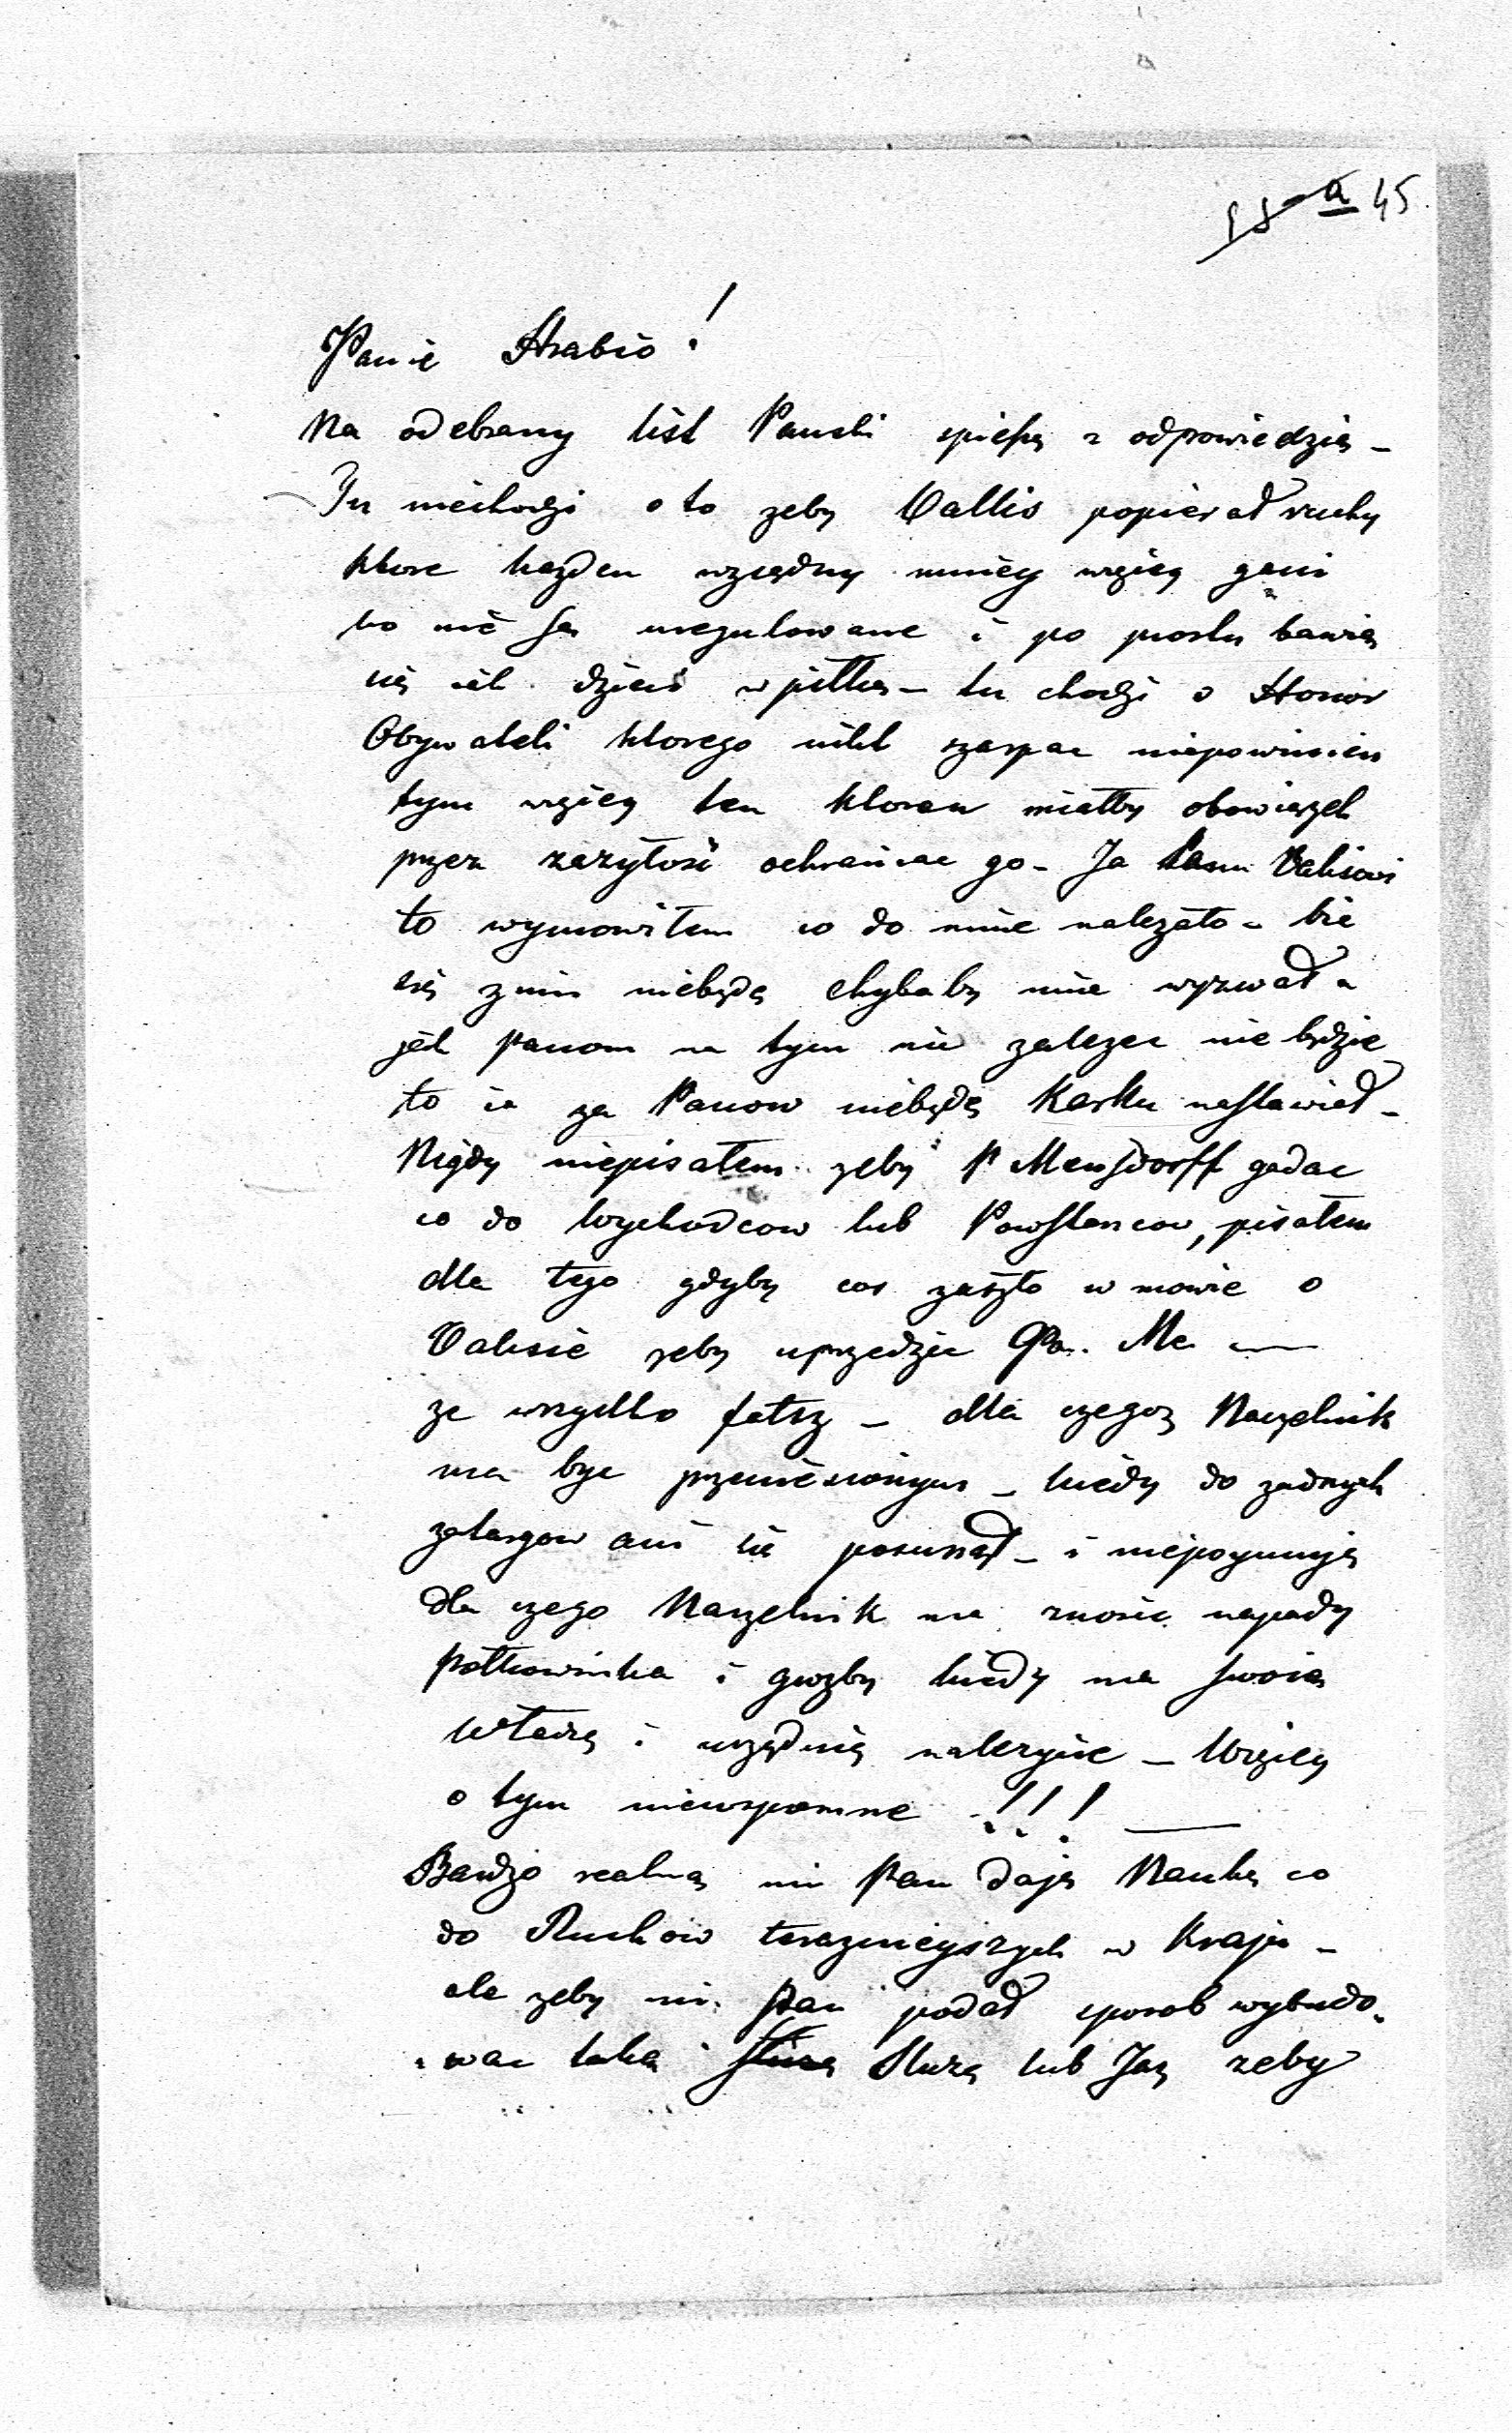 18 a 45
Panie Hrabio!
Na odebrany list Panski spieszę z odpowiedzią -
Tu niechodzi o to zeby Vallis popierał ruchy
ktore kazden rozsądny mniey więcy gani
bo nie są uregulowane i po prostu bawią
się iak dzieci w piłkę - tu chodzi o Honor
Obywateli ktorego nikt szarpac niepowinien
tym więcy ten ktoren miałby obowiązek
przez zazyłość ochraniac go - Ja Panu Valisowi
to wymowiłem co do mnie nalezało - bic
się z nim niebędę chybaby mie wyzwał a
jak Panom na tym nic zalezec nie będzie
to ia za Panow niebędę Karku nastawiał -
Nigdy niepisałem zeby P Mensdorff gadac
co do Wychodcow lub Powstancow, pisałem
dla tego gdyby cos zaszło w mowie o
Valisie zeby uprzedzic Pa. Me —
ze wszystko fałsz - dla czegoz Naczelnik
ma byc przeniesionym - kiedy do zadnych
zatargow ani się posunął - i niepoymuję
dla czego Naczelnik ma znosic napady
połkownika i grozby kiedy ma swoią
Władzę i urzęduię nalezycie - Więcy
o tym niewspomne !!! —
Bardzo realną mi Pan daję Naukę co
do Ruchow terazniejszych w Kraju -
ale zeby mi Pan podał sposob wybudo-
-wac taką Sluzę lub Jaz zeby